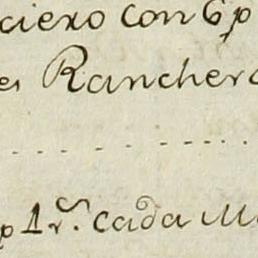 ciero con 6 p
es Ranchero
p 1 r.s cada